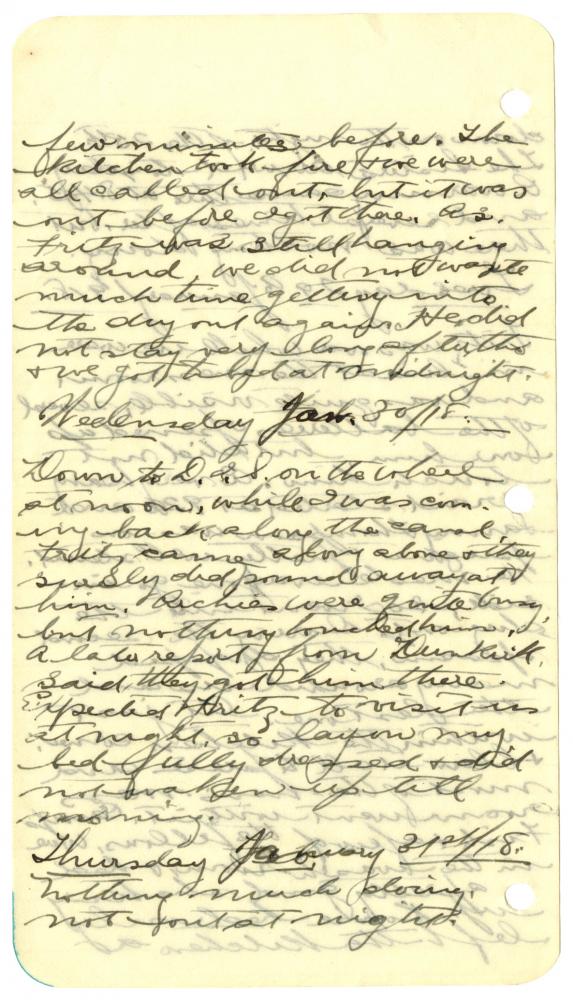 few minutes before. The
kitchen took fire & we were
all called out, but it was
out before I got there. As
Fritz was still hanging
around, we did not waste
much time getting into
the dug out again. He did
not stay very long after tho
& we got to bed at midnight.
Wedensday Jan. 30/18.
Down to D.&S. on the wheel
at noon, while I was com-
ing back along the canal,
Fritz came along above & they
surely did pound away at
him. Richies were quite busy,
but nothing touched him.
A late report from Dunkirk,
said they got him there.
Expected Fritz to visit us
at night, so lay on my
bed fully dressed & did
not waken up till
morning.
Thursday January 31st/18.
Nothing much doing,
not out at night.